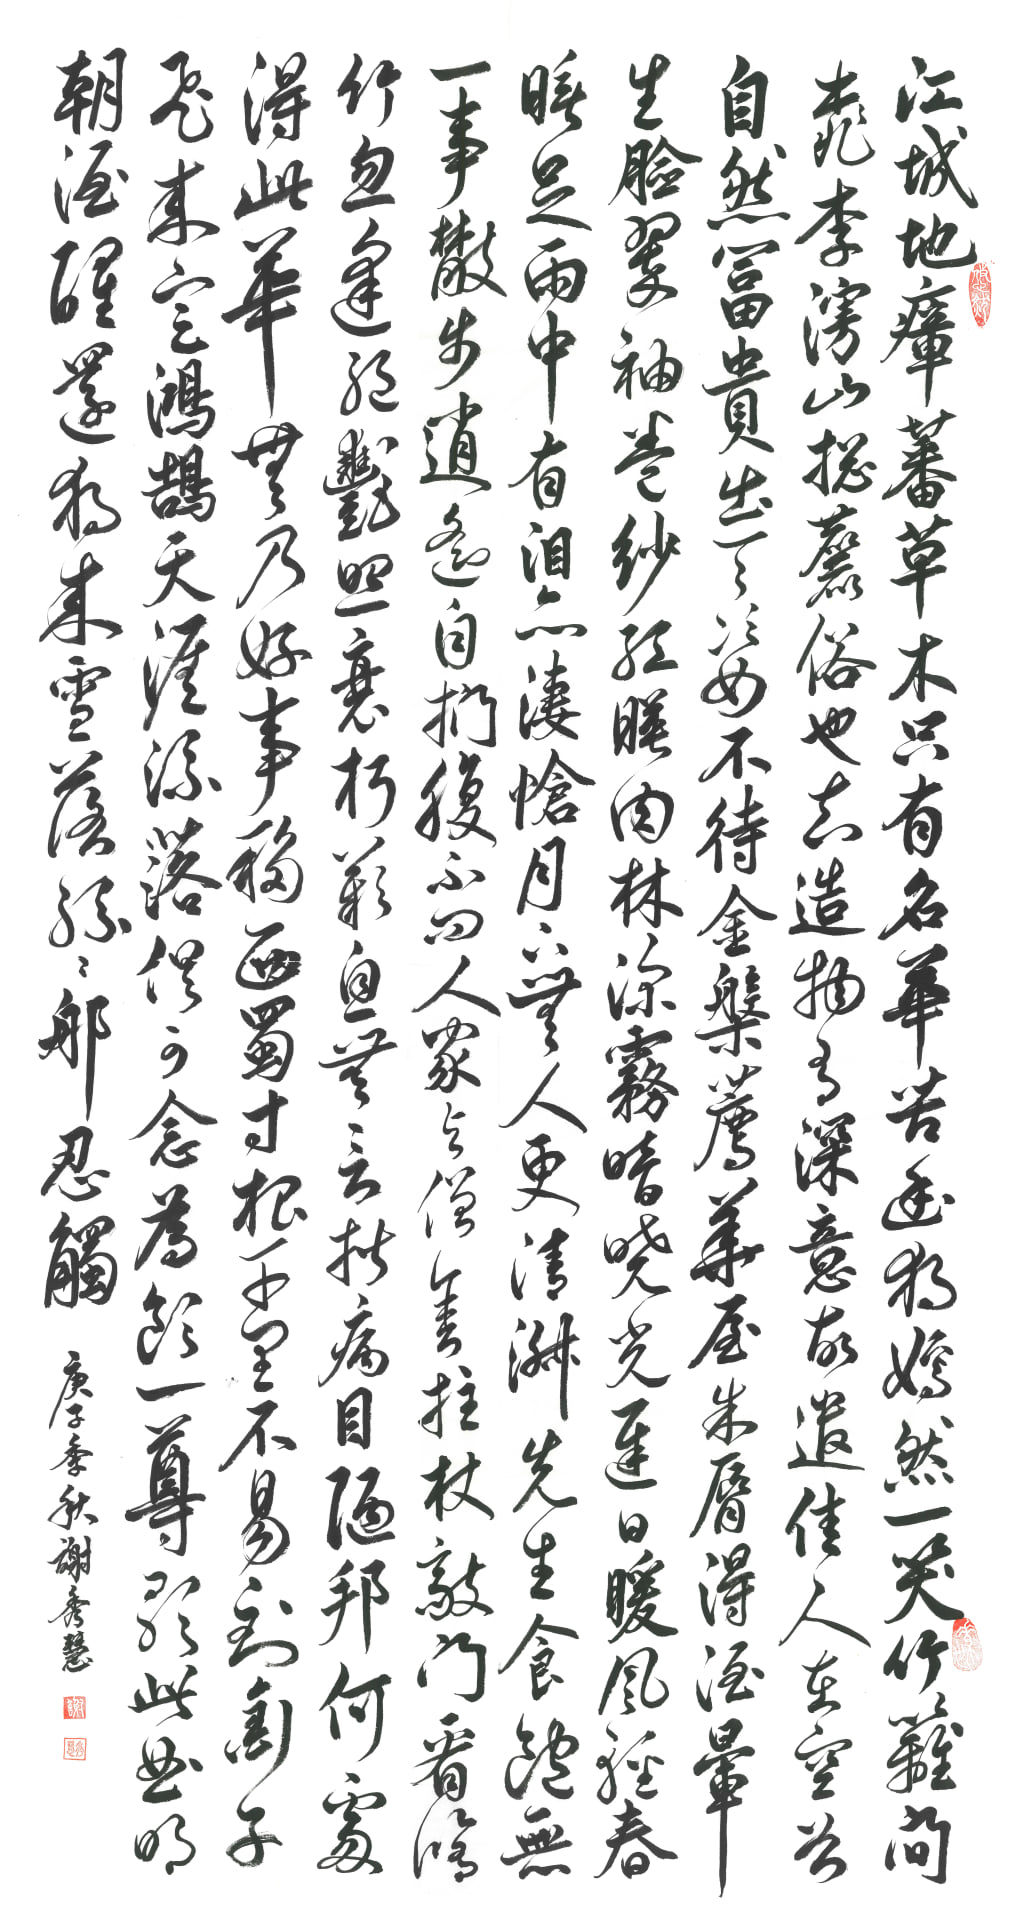 江城地瘴蕃草木只有名華苦幽獨嫣然一笑竹籬間
桃李滿山總麤俗也知造物有深意故遣佳人在空谷
自然富貴出天姿不待金盤薦華屋朱脣得酒暈
生臉翠袖卷紗紅映肉林深霧暗曉光遲日暖風輕春
睡足雨中有泪亦淒愴月下無人更清淑先生食飽無
一事散步逍遙自捫腹不問人家與僧舍拄杖敲門看脩
竹忽逢絕艷照衰朽歎息無言揩病目陋邦何處
得此華無乃好事移西蜀寸根千里不易到銜子
飛來定鴻鵠天涯流落俱可念為飲一尊歌此曲明
朝酒醒還獨來雪落紛紛那忍觸
庚子季秋謝秀慧